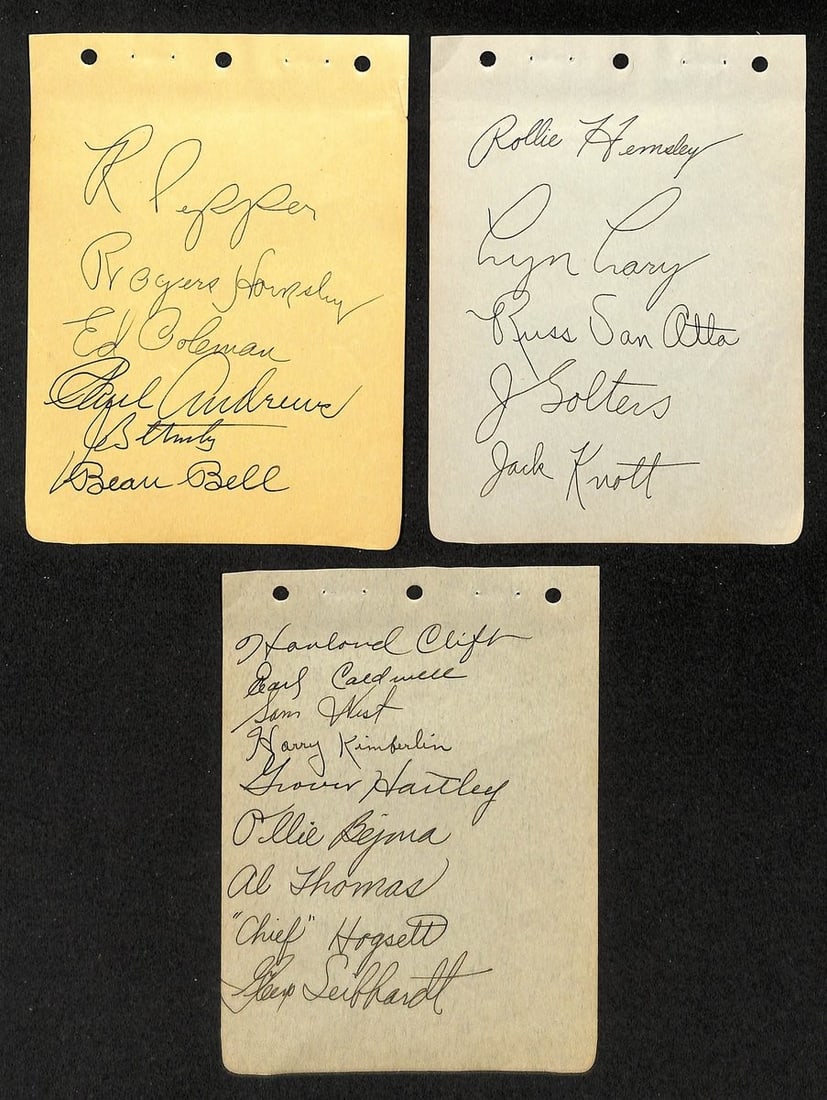 R Pepper
Rogers Hornsby
Ed Coleman
Paul Andrews
Beau Bell
Rollie Hemsley
Lyn Lary
Russ Van Atta
J Solters
Jack Knott
Harlond Clift
Earl Caldwell
Sam West
Harry Kimberlin
Grover Hartley
Ollie Bejma
Al Thomas
"Chief" Hogsett
Glenn Leibhardt